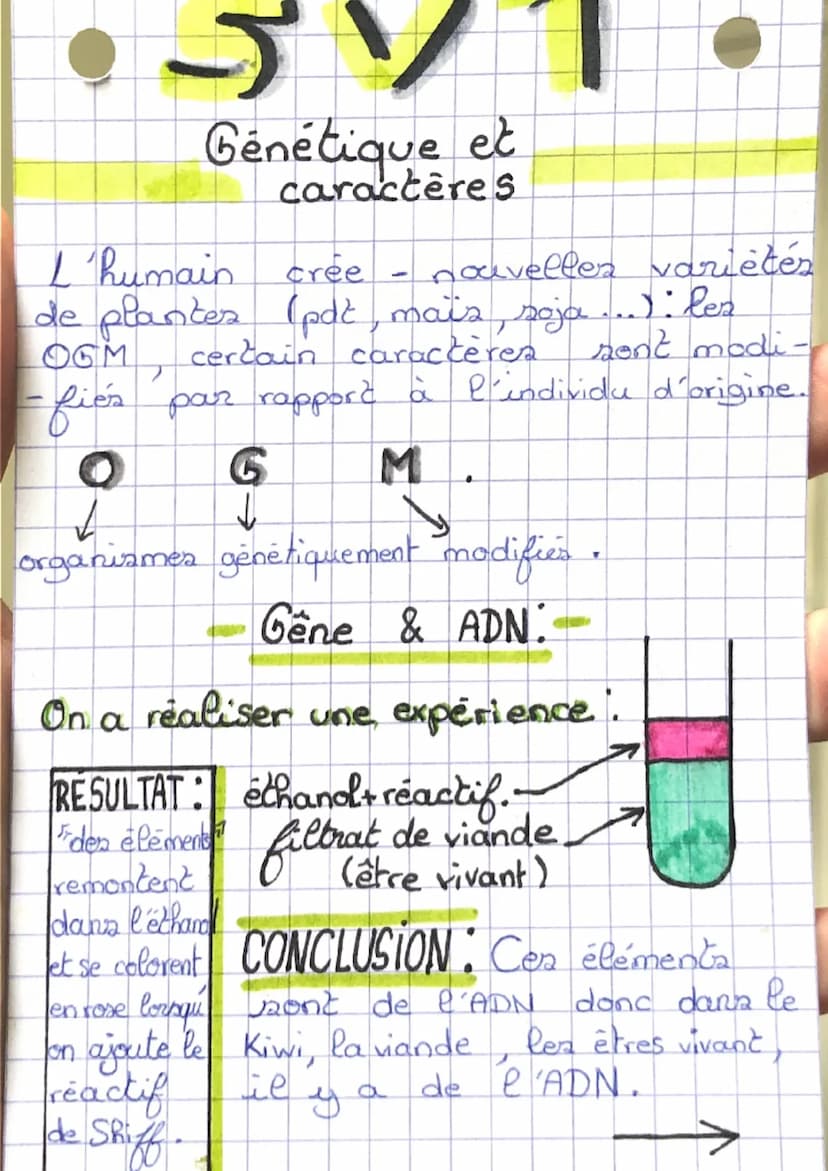 SVT
Génétique et
caractères
L'humain crée - nouvelles variétés
de plantes (pdt, maïs, soja ...) : les
OGM, certain caractères sont modi-
-fiés par rapport à l'individu d'origine.
O G M .
organismes génétiquement modifiés .
- Gêne & ADN : -
On a réaliser une expérience :
RÉSULTAT :
"des éléments"
remontent
dans l'éthanol
et se colorent
en rose lorsqu'
on ajoute le
réactif
de Shiff.
éthanol + réactif.
filtrat de viande
(être vivant)
CONCLUSION : Ces éléments
sont de l'ADN donc dans le
Kiwi, la viande, les êtres vivant,
il y a de l'ADN.